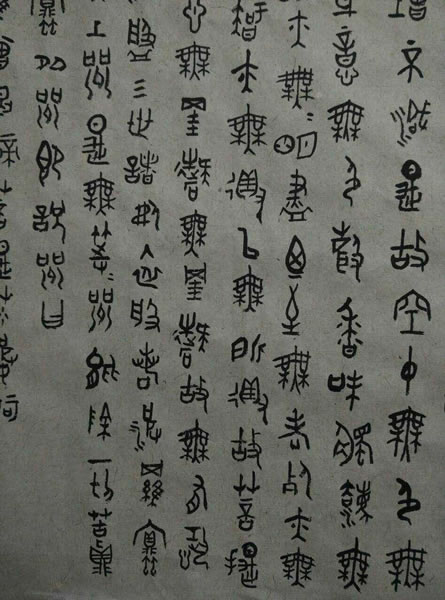 增不減是故空中無色無
身意無色聲香味觸法無
亦無=明盡乃至無老死亦無
智亦無得以無所得故菩提
心無罣礙無罣礙故無有恐
般三世諸佛依般若波羅蜜
上咒是無等=咒能除一切苦真
蜜多咒即說咒曰